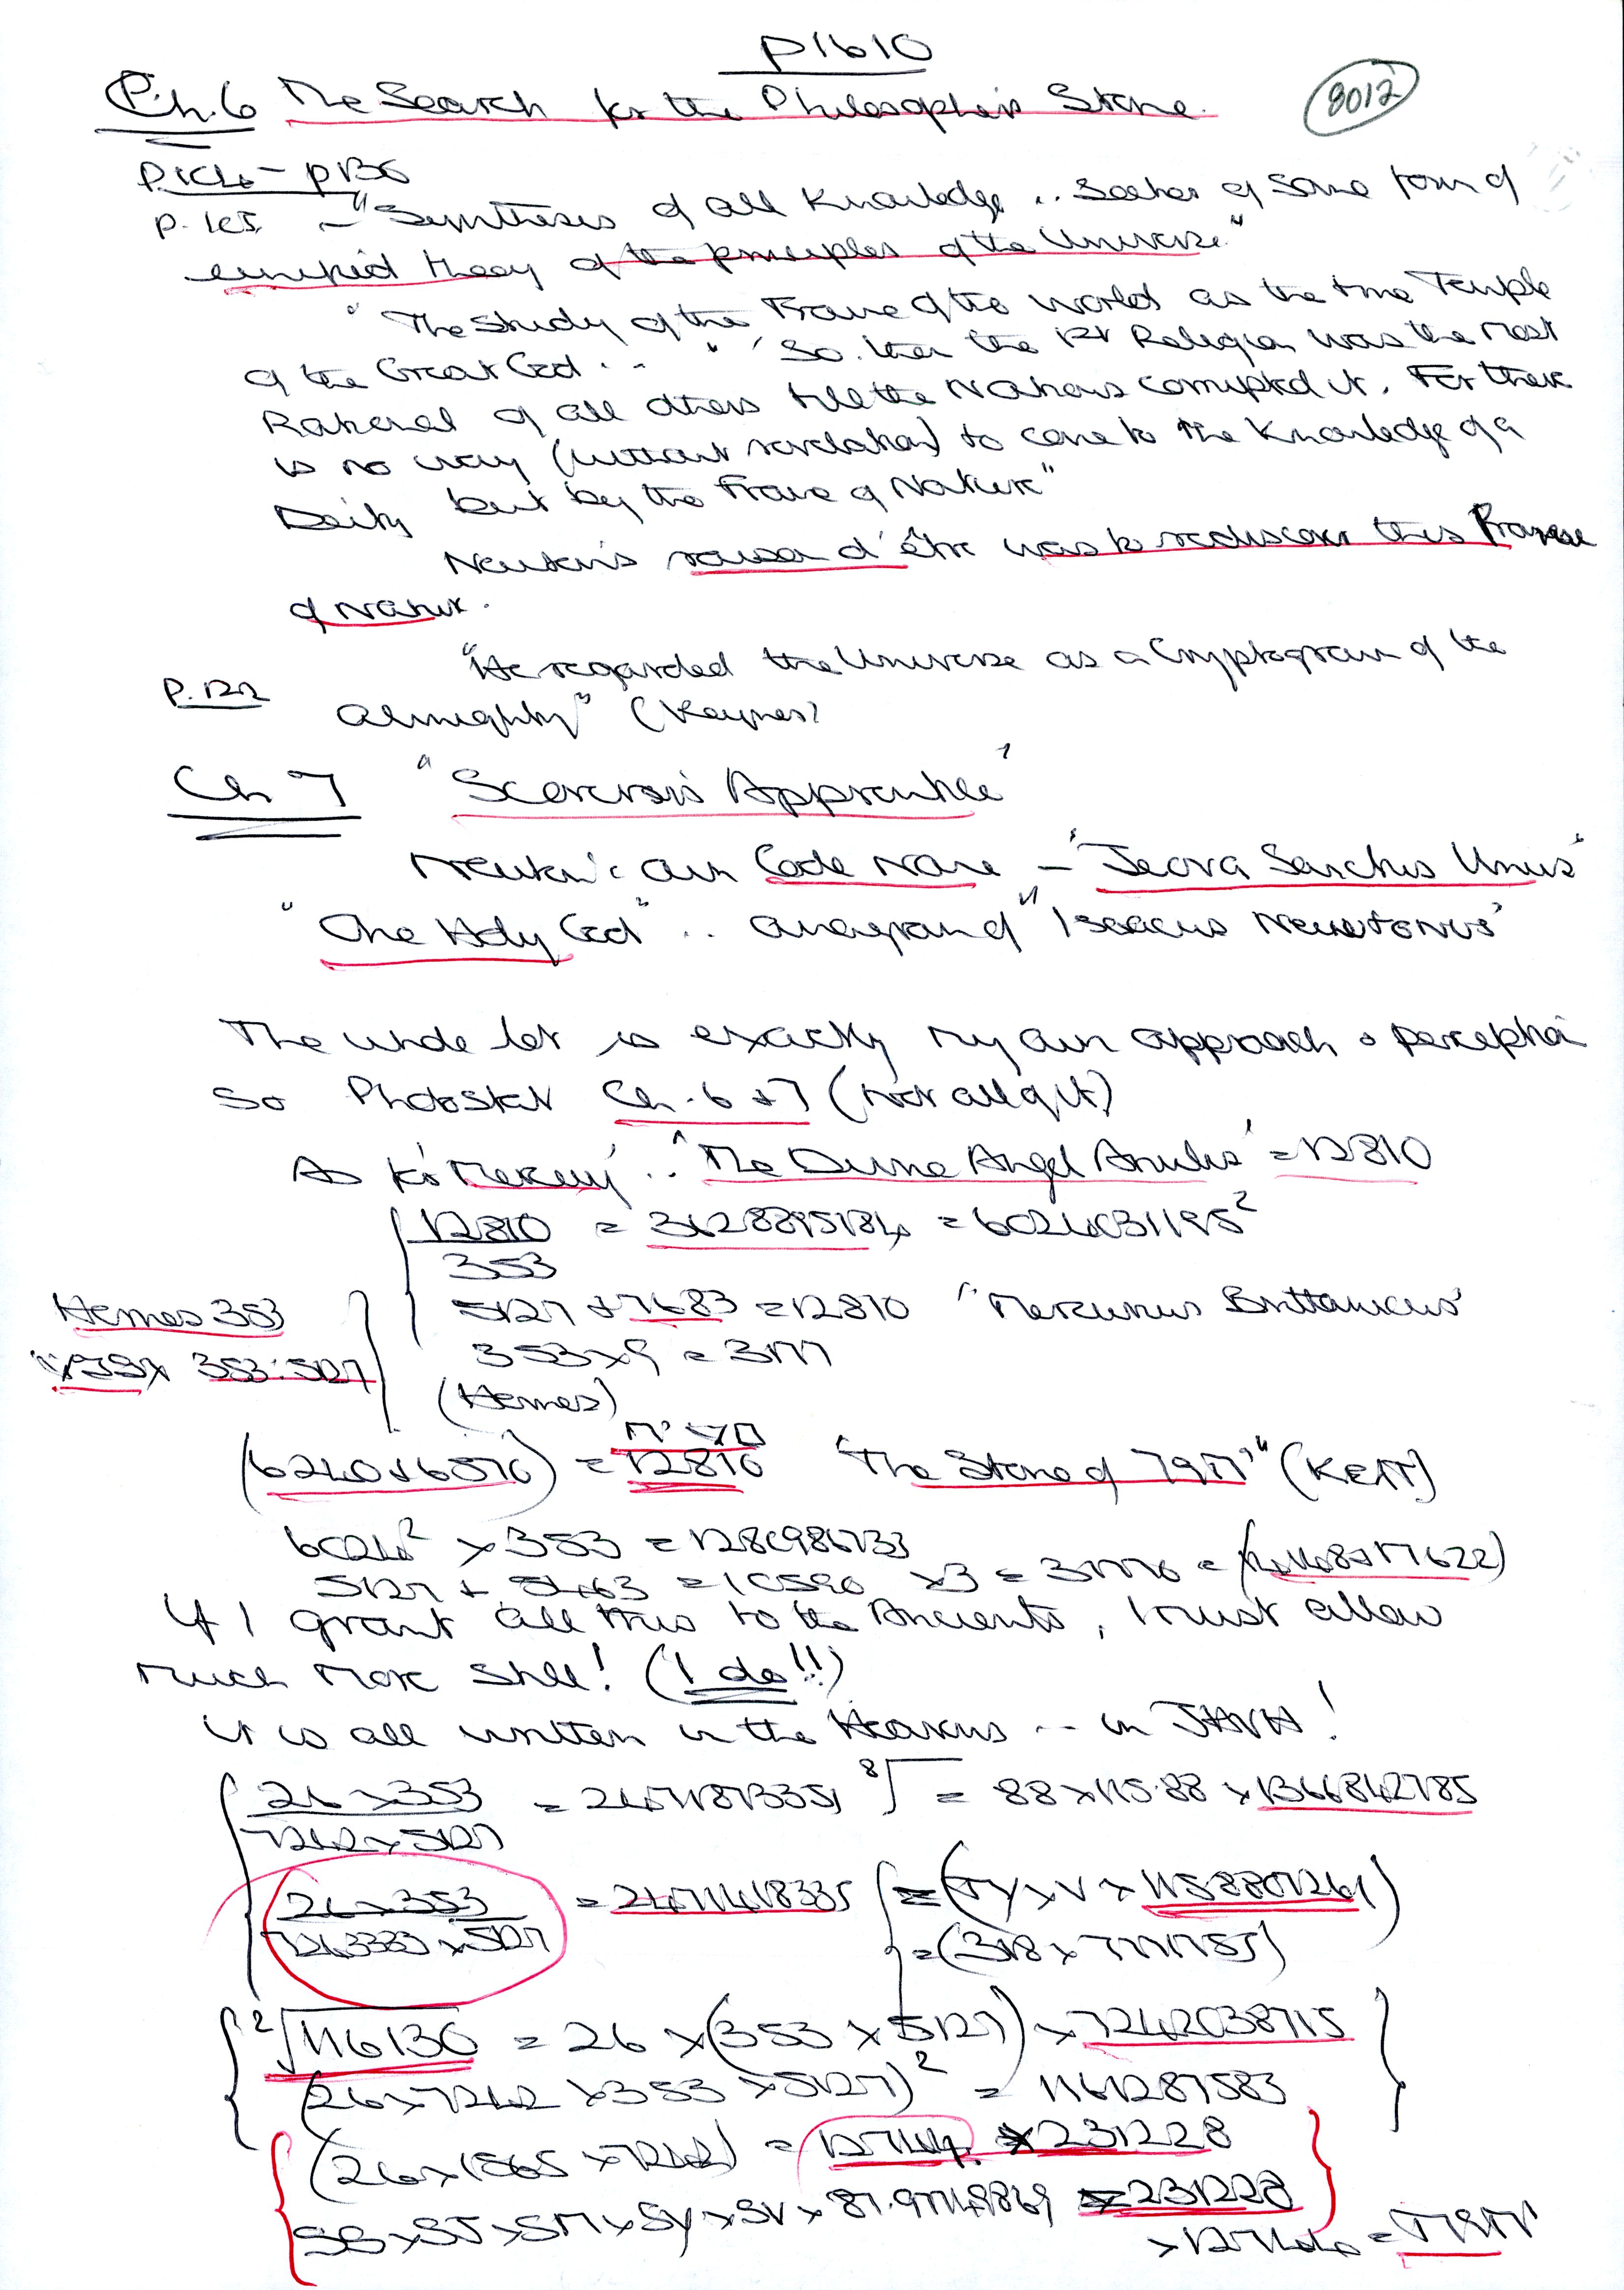 P1610
Ch.6 The Search for the Philosopher's Stone.
8012
P.104 - p130
p.105 - "Synthesis of all Knowledge .. Seeker of some form of
unified theory of the principles of the Universe."
"The study of the Frame of the world as the true Temple
of the Great God . . ." "So then the 1st Religion was the most
Rational of all others till the Nations corrupted it. For there
is no way (without revelation) to come to the Knowledge of a
Deity but by the Frame of Nature"
Newton's raison d'être was to rediscover this Frame
of Nature.
"He regarded the Universe as a Cryptogram of the
P.122
Almighty" (Keynes)
Ch 7 "Sorcerer's Apprentice"
Newton's own Code Name - 'Jeova Sanctus Unus'
"One Holy God" .. anagram of "Isaacus Neuutonus"
The whole lot is exactly my own approach & perception
So Photostat Ch. 6 + 7 (not all of it)
As for 'Mercury' .. 'The Divine Angel Anubis' = 12810
12810 = 3628895184 = 6024031195²
353
5127 + 7683 = 12810 'Mercurius Brittanicus'
Hermes 353
353 x 9 = 3177
353:5127
(Hermes)
(6240 + 6570) = 12810 "The Stone of (KEAT)
6024² x 353 = 1280986733
5127 + 5463 = 10590 x 3 = 31770 =
If I grant all this to the Ancients, I must allow
much more still! (I do!!)
it is all written in the Heavens -- in JAVA!
26 x 353 = 2471873351 8√ = 88 x 115.88 x 1366842785
7242 x 5127
26 x 353 = 2471418335 = (JY x V x 1158801261)
7243333 x 5127 = (318 x 7771785)
²√116130 = 26 x (353 x 5127) x 7242038715
(26 x 7242 x 353 x 5127)² = 1161287583
(26 x 1565 x 7242) = 127144. x 231228
SS x SJ x SM x SY x SV x 87.97148869 = 231228